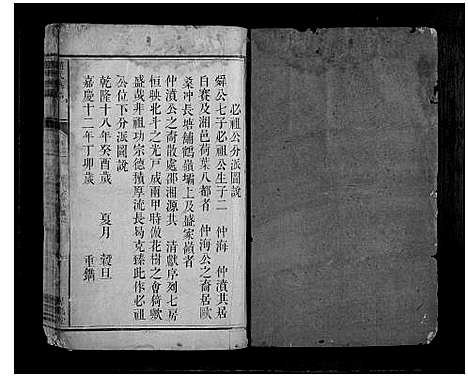 必祖公分派圖說
舜公七子必祖公生子二　仲海　仲濆其居
白賽及湘邑荷葉八都者　仲海公之裔居歐
桑冲長塘鋪鶴嶺壩上及盛家嶺者
仲濆公之裔散處邵湘源共　清獻序列七房
恒映北斗之光戸成兩甲時倣花樹之會猗歟
盛哉非祖功宗德積厚流長曷克臻此作必祖
公位下分派圖說
乾隆十八年癸酉歲　夏月　穀旦
嘉慶十二年丁卯歲　　重鐫